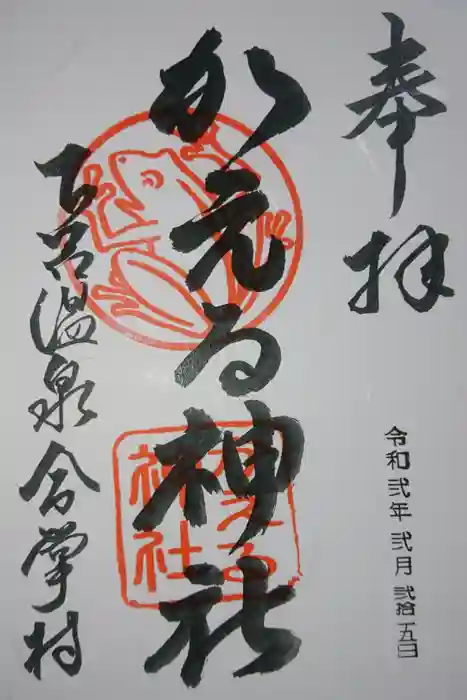 奉拝
令和弐年 弐月 弐拾五日
かえる神社
かえる
神社
下呂温泉合掌村